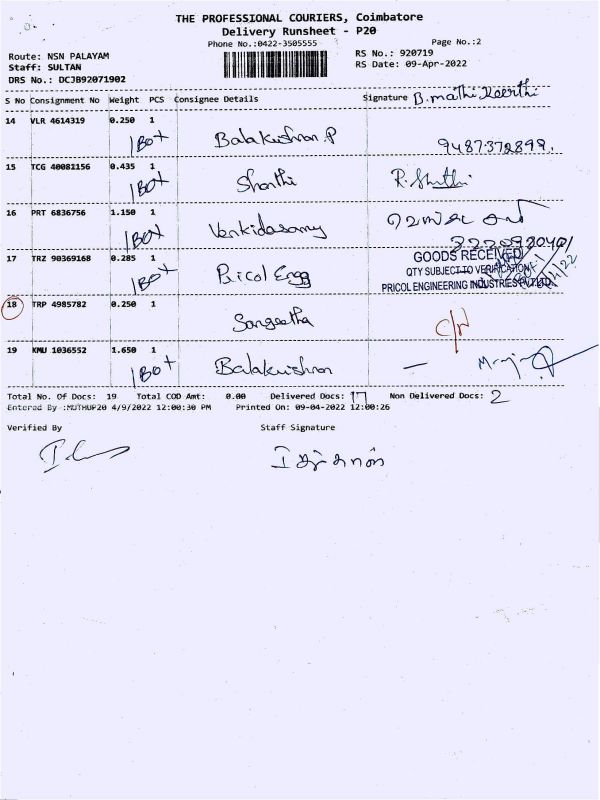 THE PROFESSIONAL COURIERS, Coimbatore
Delivery Runsheet - P20
Phone No.:0422-3505555
Page No.:2
Route: NSN PALAYAM
RS No.: 920719
Staff: SULTAN
RS Date: 09-Apr-2022
DRS No.: DCJB92071902
S No Consignment No Weight PCS Consignee Details Signature B.mathi Keerthi
14 VLR 4614319 0.250 1
1 Box Balakrishnan.P 9487372899.
15 TCG 40081156 0.435 1
1 Box Shanthi R. Shanthi
16 PRT 6836756 1.150 1
1 Box Venkidasamy
17 TRZ 90369168 0.285 1
1 Box Pricol Engg
GOODS RECEIVED
QTY SUBJECT TO VERIFICATION
PRICOL ENGINEERING INDUSTRIES PVT LTD.
18 TRP 4985782 0.250 1
Sangeetha
19 KMU 1036552 1.650 1
1 Box Balakrishnan
Total No. Of Docs: 19 Total COD Amt: 0.00 Delivered Docs: 17 Non Delivered Docs: 2
Entered By :MUTHUP20 4/9/2022 12:00:30 PM Printed On: 09-04-2022 12:00:26
Verified By Staff Signature